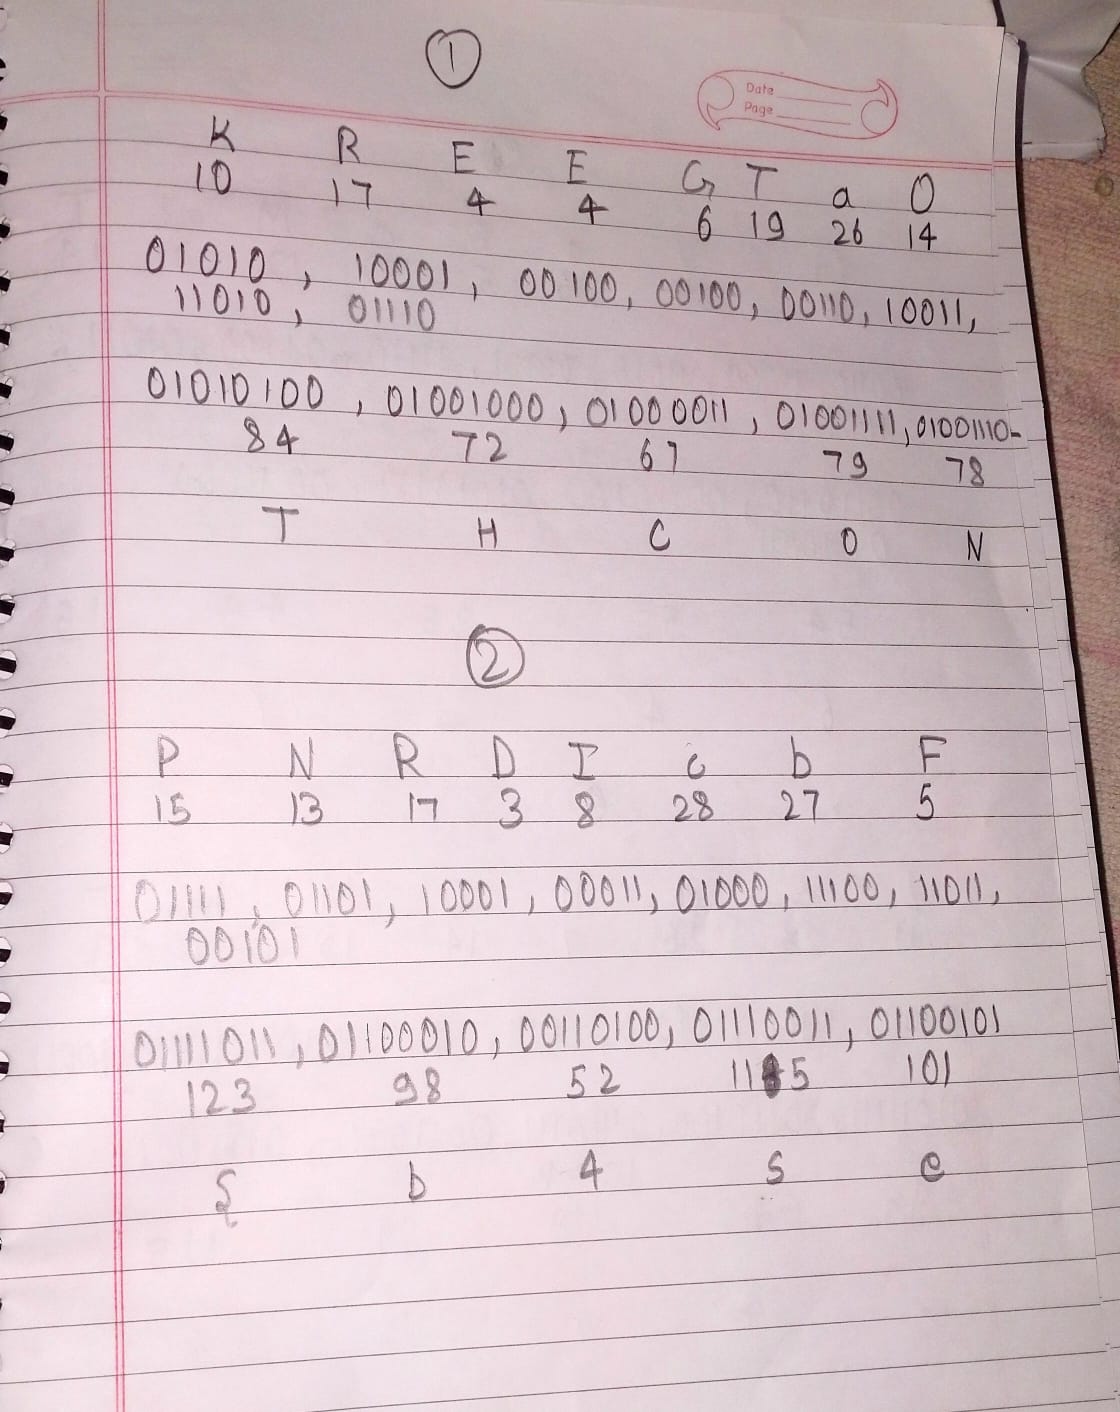 1
Date
Page
K R E E G T a O
10 17 4 4 6 19 26 14
01010, 10001, 00100, 00100, 00110, 10011,
11010, 01110
01010100, 01001000, 01000011, 01001111, 01001110-
84 72 67 79 78
T H C O N
2
P N R D I c b F
15 13 17 3 8 28 27 5
01111, 01101, 10001, 00011, 01000, 11100, 11011,
00101
01111011, 01100010, 00110100, 01110011, 01100101
123 98 52 115 101
{ b 4 s e